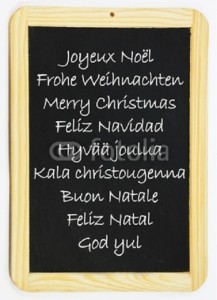 Joyeux Noël
Frohe Weihnachten
Merry Christmas
Feliz Navidad
Hyvää joulua
Kala christougenna
Buon Natale
Feliz Natal
God yul
fotolia